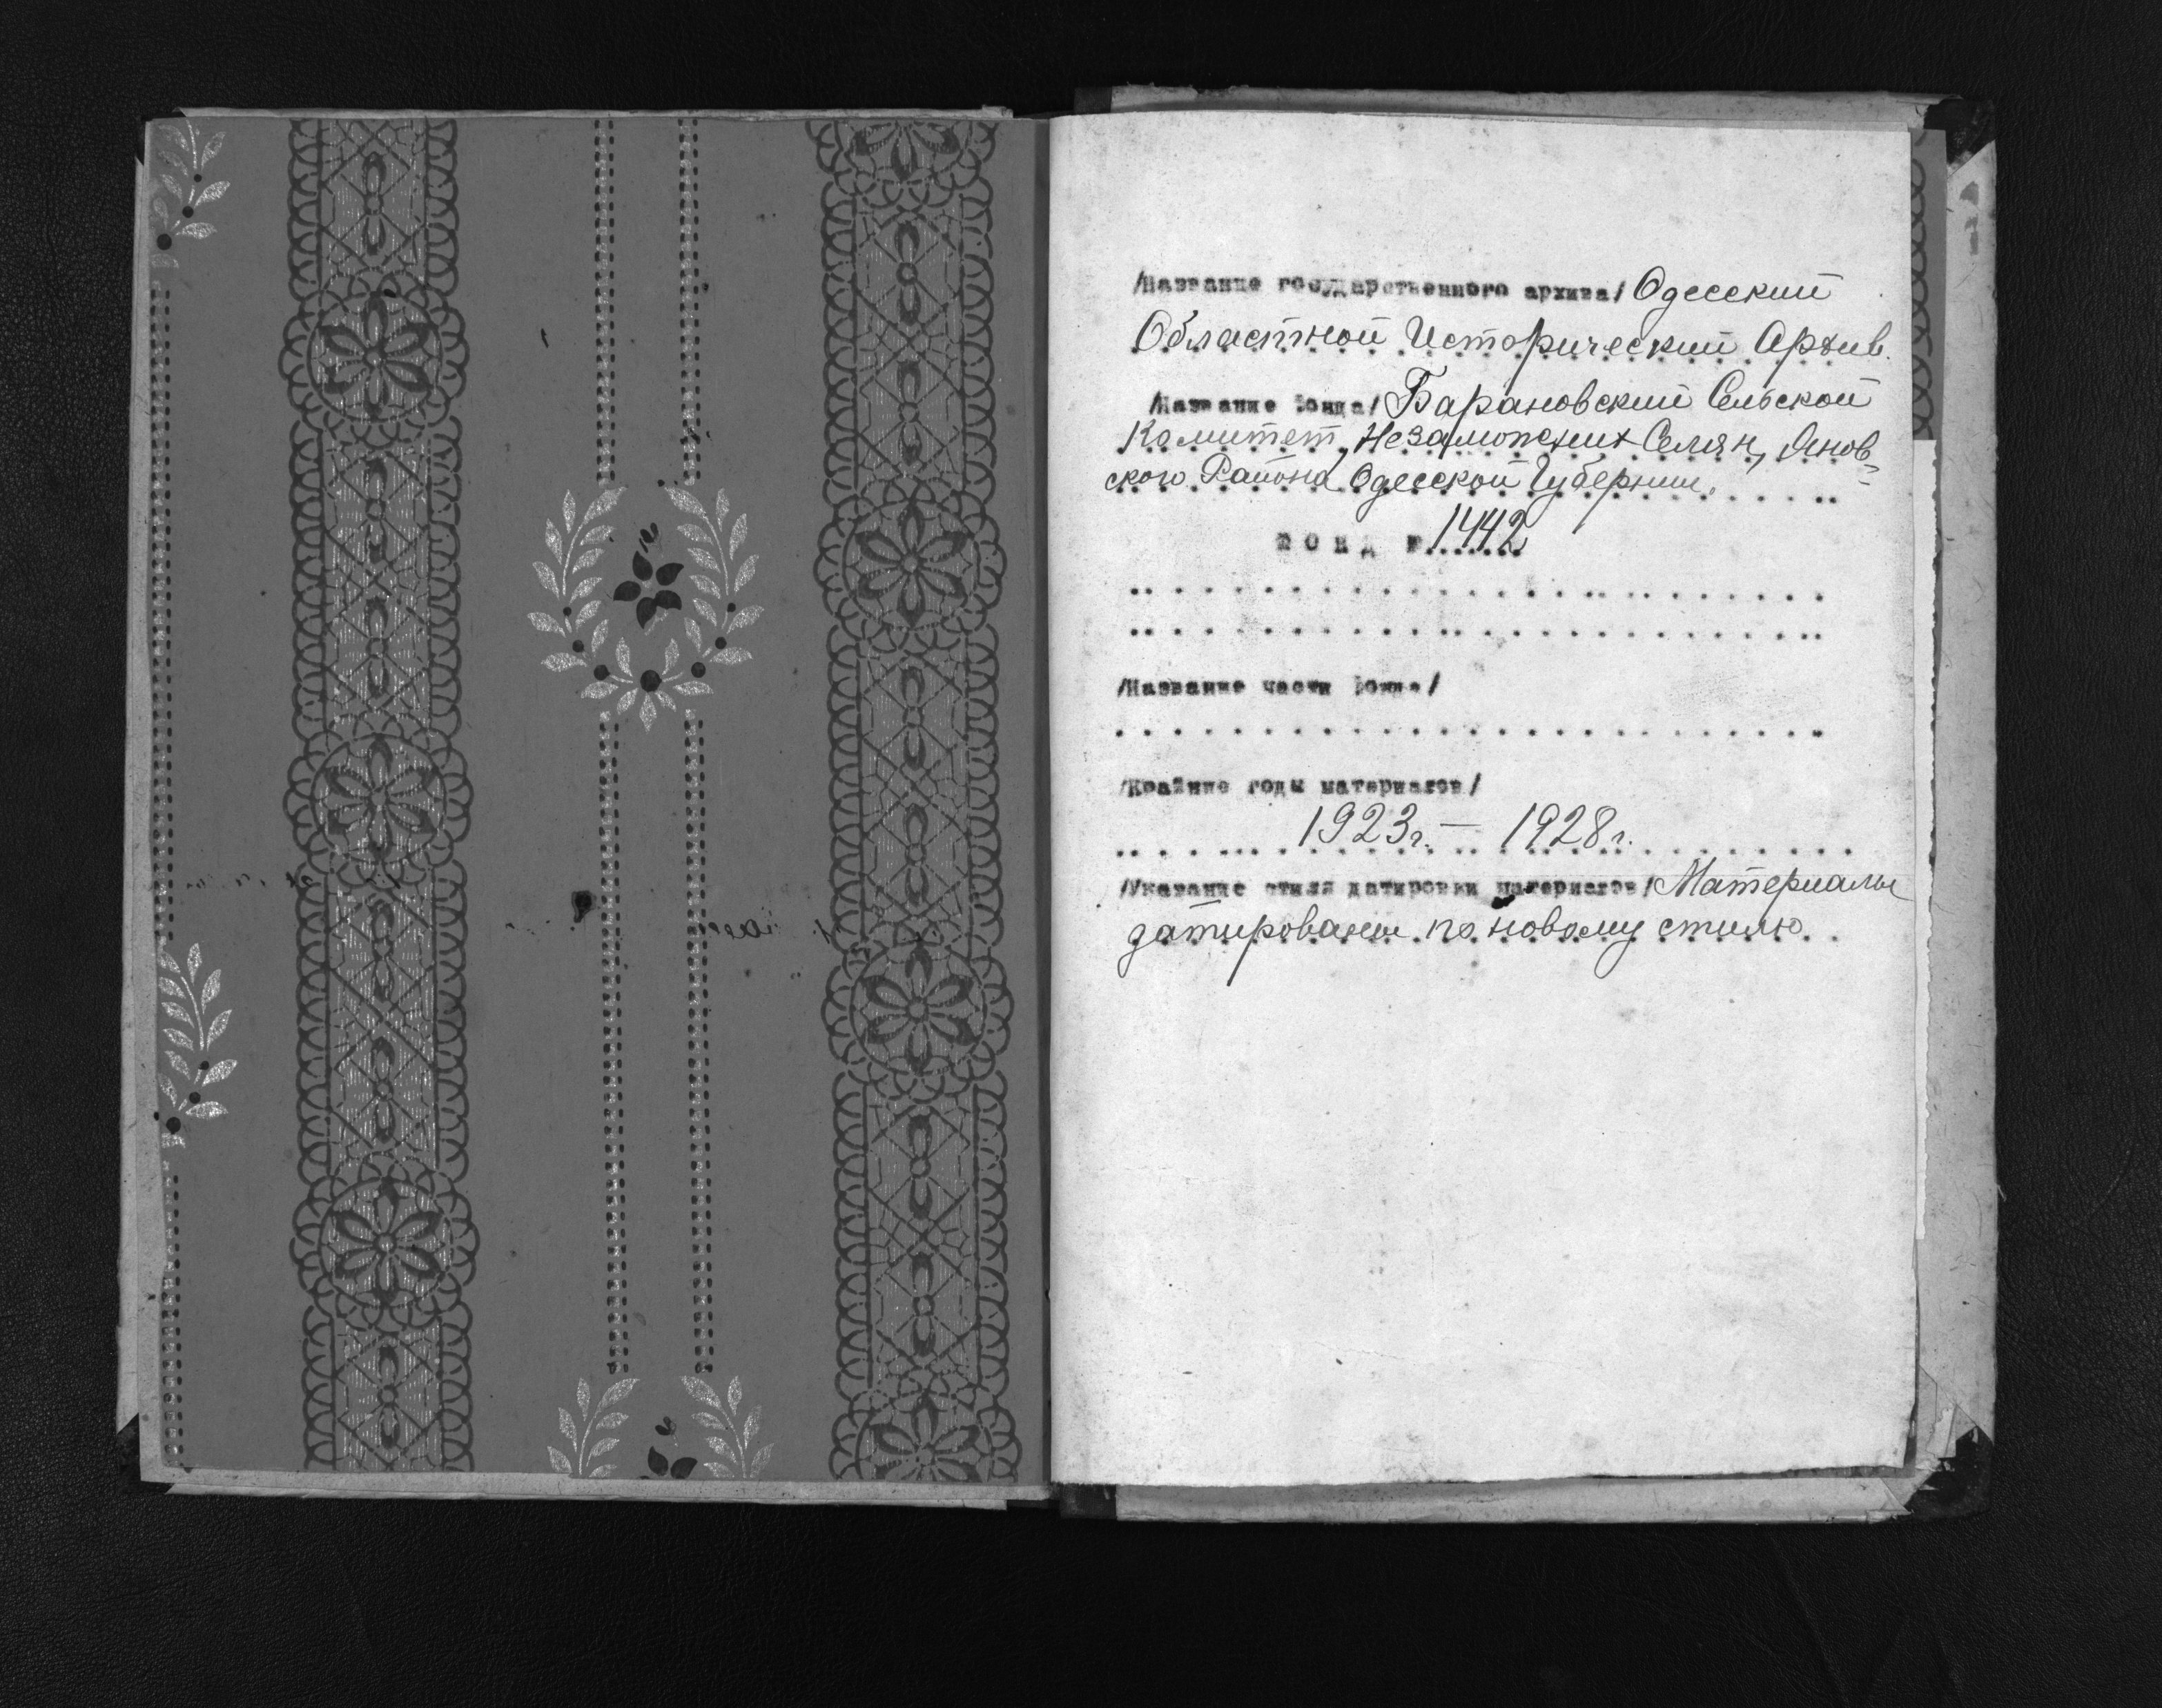 /Название государственного архива/ Одесский
Областной Исторический Архив.
/Название фонда/ Барановский Сельской
Комитет Незаможних Селян, Янов-
ского Района Одесской Губернии.
ФОНД № 1442
/Название части фонда/
/Крайние годы материалов/
1923г. — 1928г.
/Указание стиля датировки материалов/ Материалы
датированы по новому стилю.